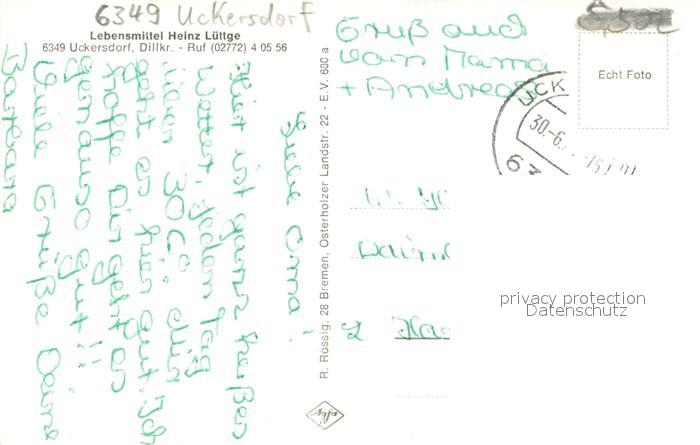 6349 Uckersdorf
Lebensmittel Heinz Lüttge
6349 Uckersdorf, Dillkr. - Ruf (02772) 4 05 56
Liebe Oma!
Hier ist ganz heißes
Wetter, jeden Tag
über 30 C°. Mir
geht es hier gut. Ich
hoffe Dir geht es
genauso gut!!
Viele Grüße Deine
Barbara
R. Rössig, 28 Bremen, Osterholzer Landstr. 22 - E.V. 680 a
Gruß auch
von Mama
+ Andreas
Echt Foto
UCK
30.-6.
63
2 Ha
privacy protection
Datenschutz
Agfa